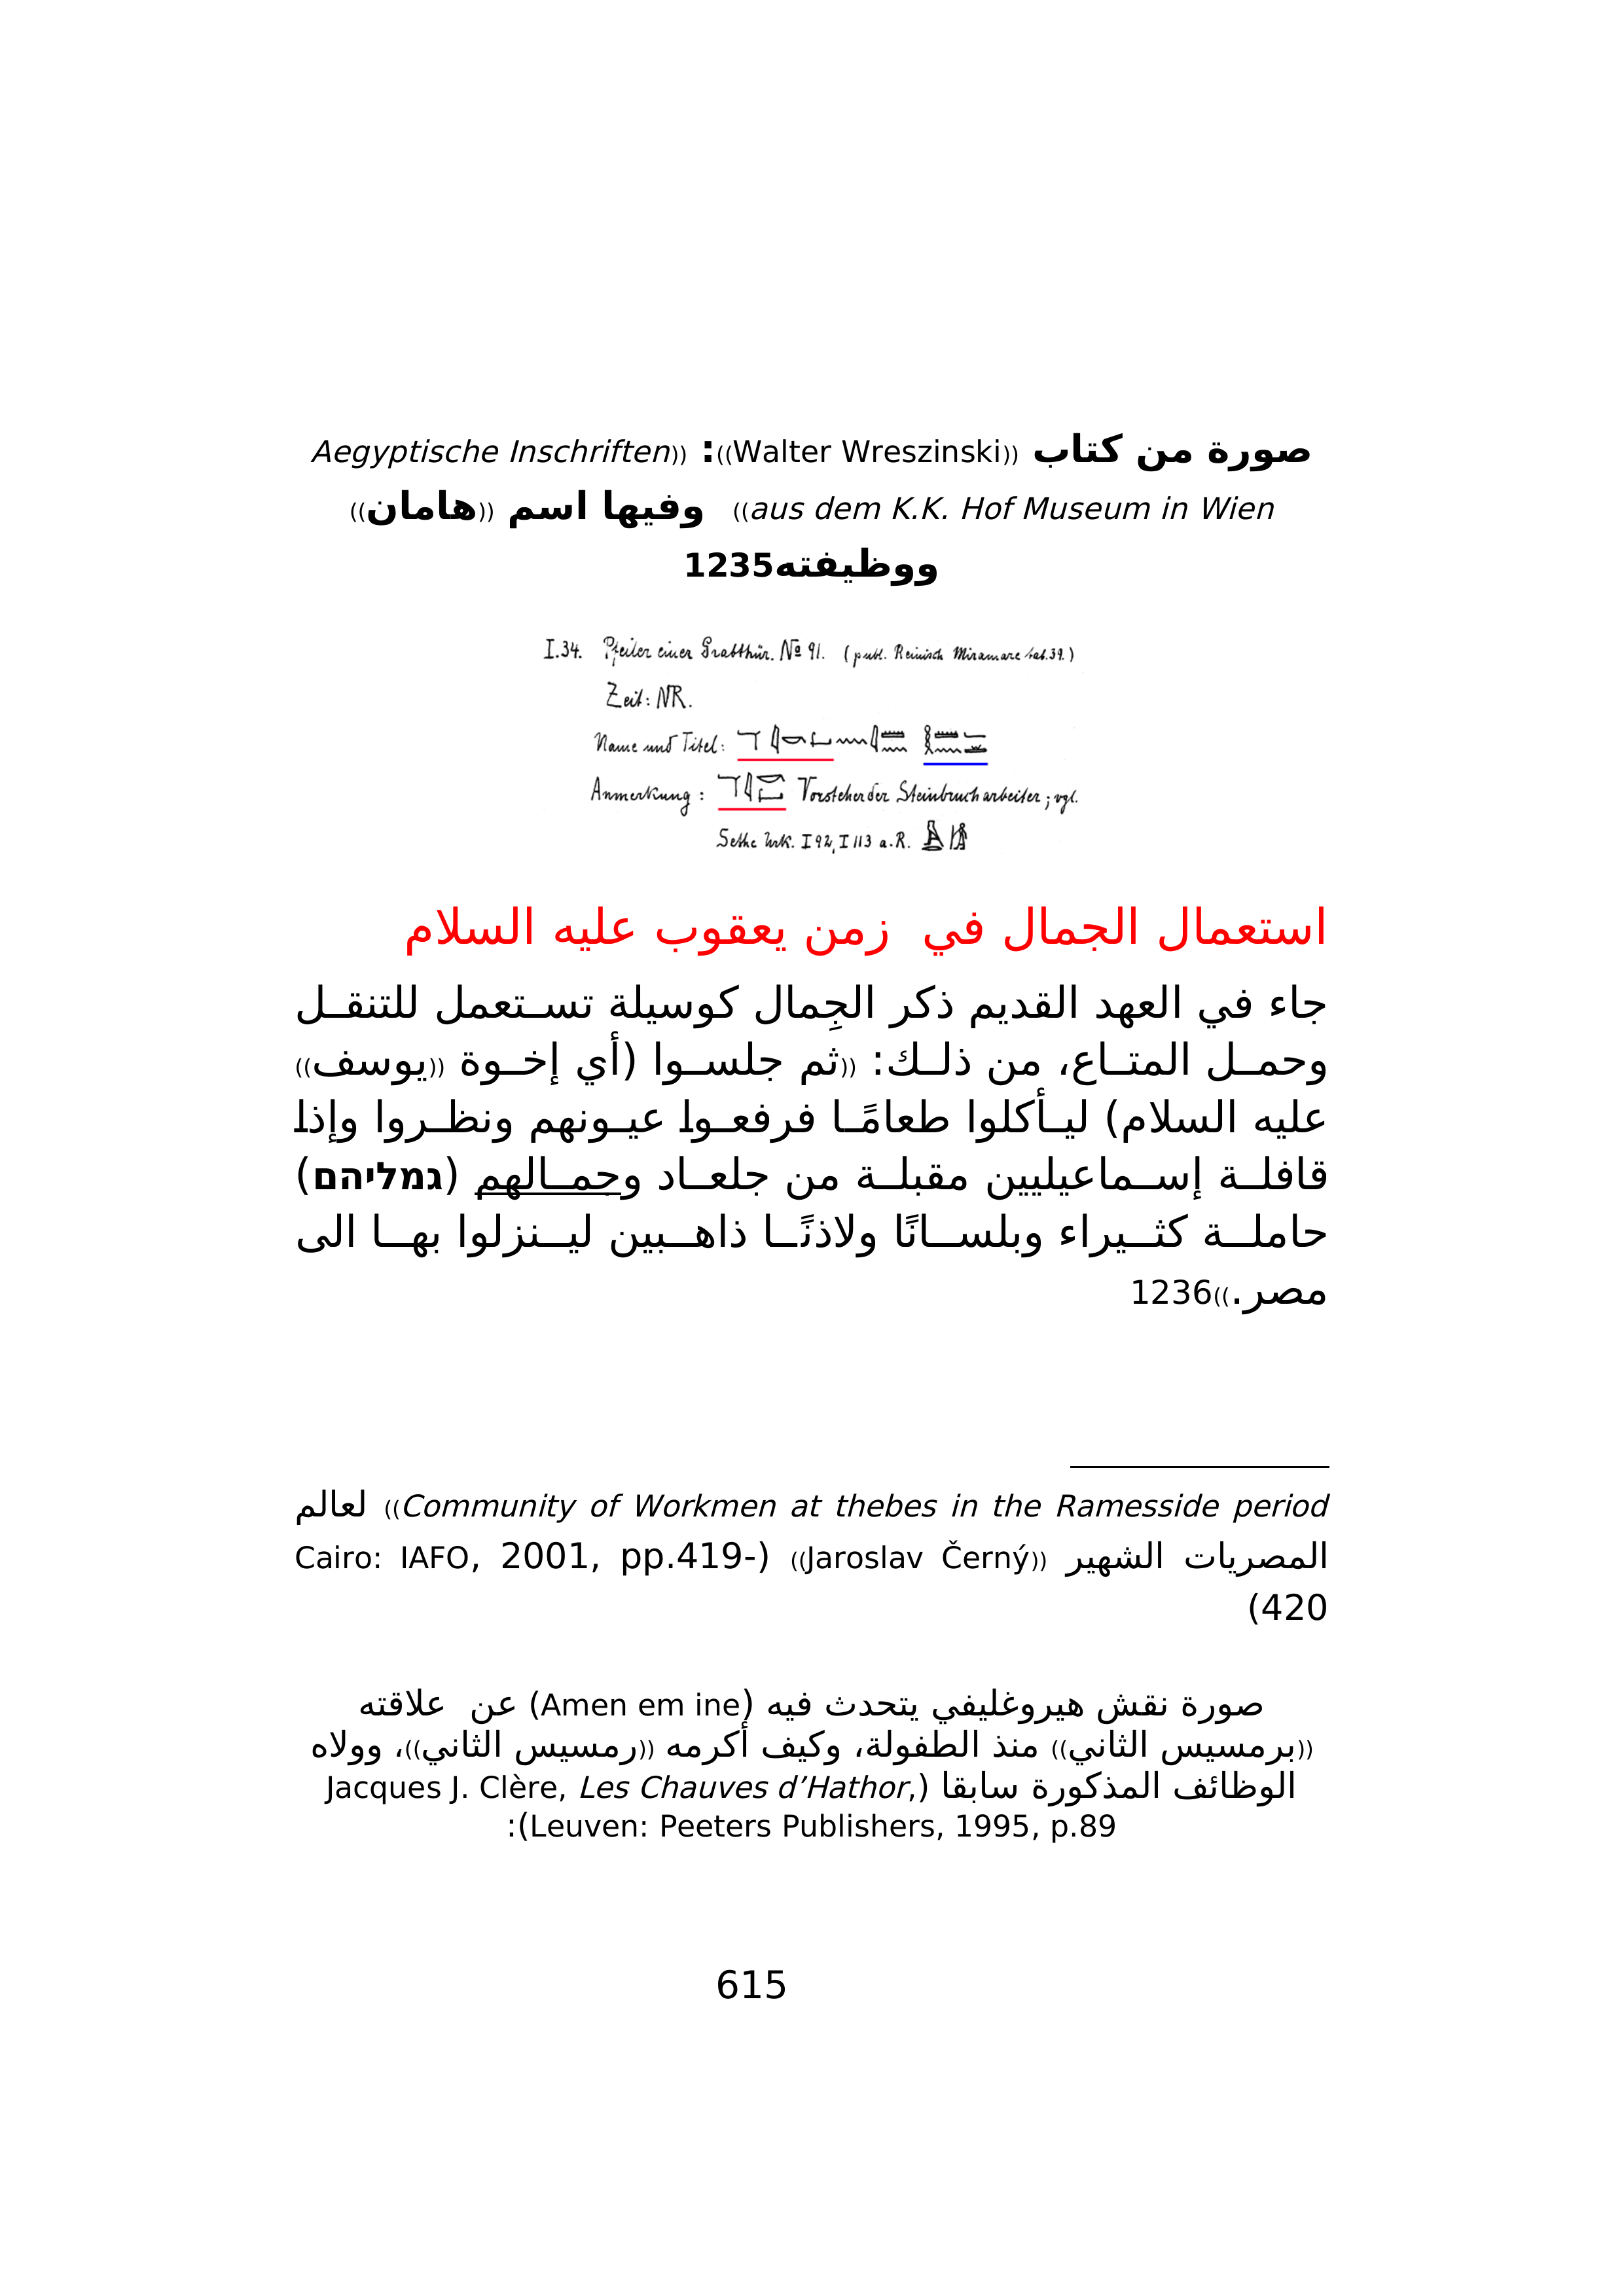 صورة من كتاب ((Walter Wreszinski)): ((Aegyptische Inschriften
aus dem K.K. Hof Museum in Wien)) وفيها اسم ((هامان))
ووظيفته1235
I.34. Pfeiler einer Grabthür. Nº 91. (publ. Reinisch Miramare tab. 39.)
Zeit: NR.
Name und Titel:
Anmerkung: Vorsteher der Steinbrucharbeiter; vgl.
Sethe Urk. I 92, I 113 a.R.
استعمال الجمال في زمن يعقوب عليه السلام
جاء في العهد القديم ذكر الجِمال كوسيلة تستعمل للتنقل
وحمل المتاع، من ذلك: ((ثم جلسوا (أي إخوة ((يوسف))
عليه السلام) ليأكلوا طعامًا فرفعوا عيونهم ونظروا وإذا
قافلة إسماعيليين مقبلة من جلعاد وجمالهم (גמליהם)
حاملة كثيراء وبلسانًا ولاذنًا ذاهبين لينزلوا بها الى
مصر.))1236
Community of Workmen at thebes in the Ramesside period)) لعالم
المصريات الشهير ((Jaroslav Černý)) (Cairo: IAFO, 2001, pp.419-
420)
صورة نقش هيروغليفي يتحدث فيه (Amen em ine) عن علاقته
((برمسيس الثاني)) منذ الطفولة، وكيف أكرمه ((رمسيس الثاني))، وولاه
الوظائف المذكورة سابقا (Jacques J. Clère, Les Chauves d’Hathor,
Leuven: Peeters Publishers, 1995, p.89):
615